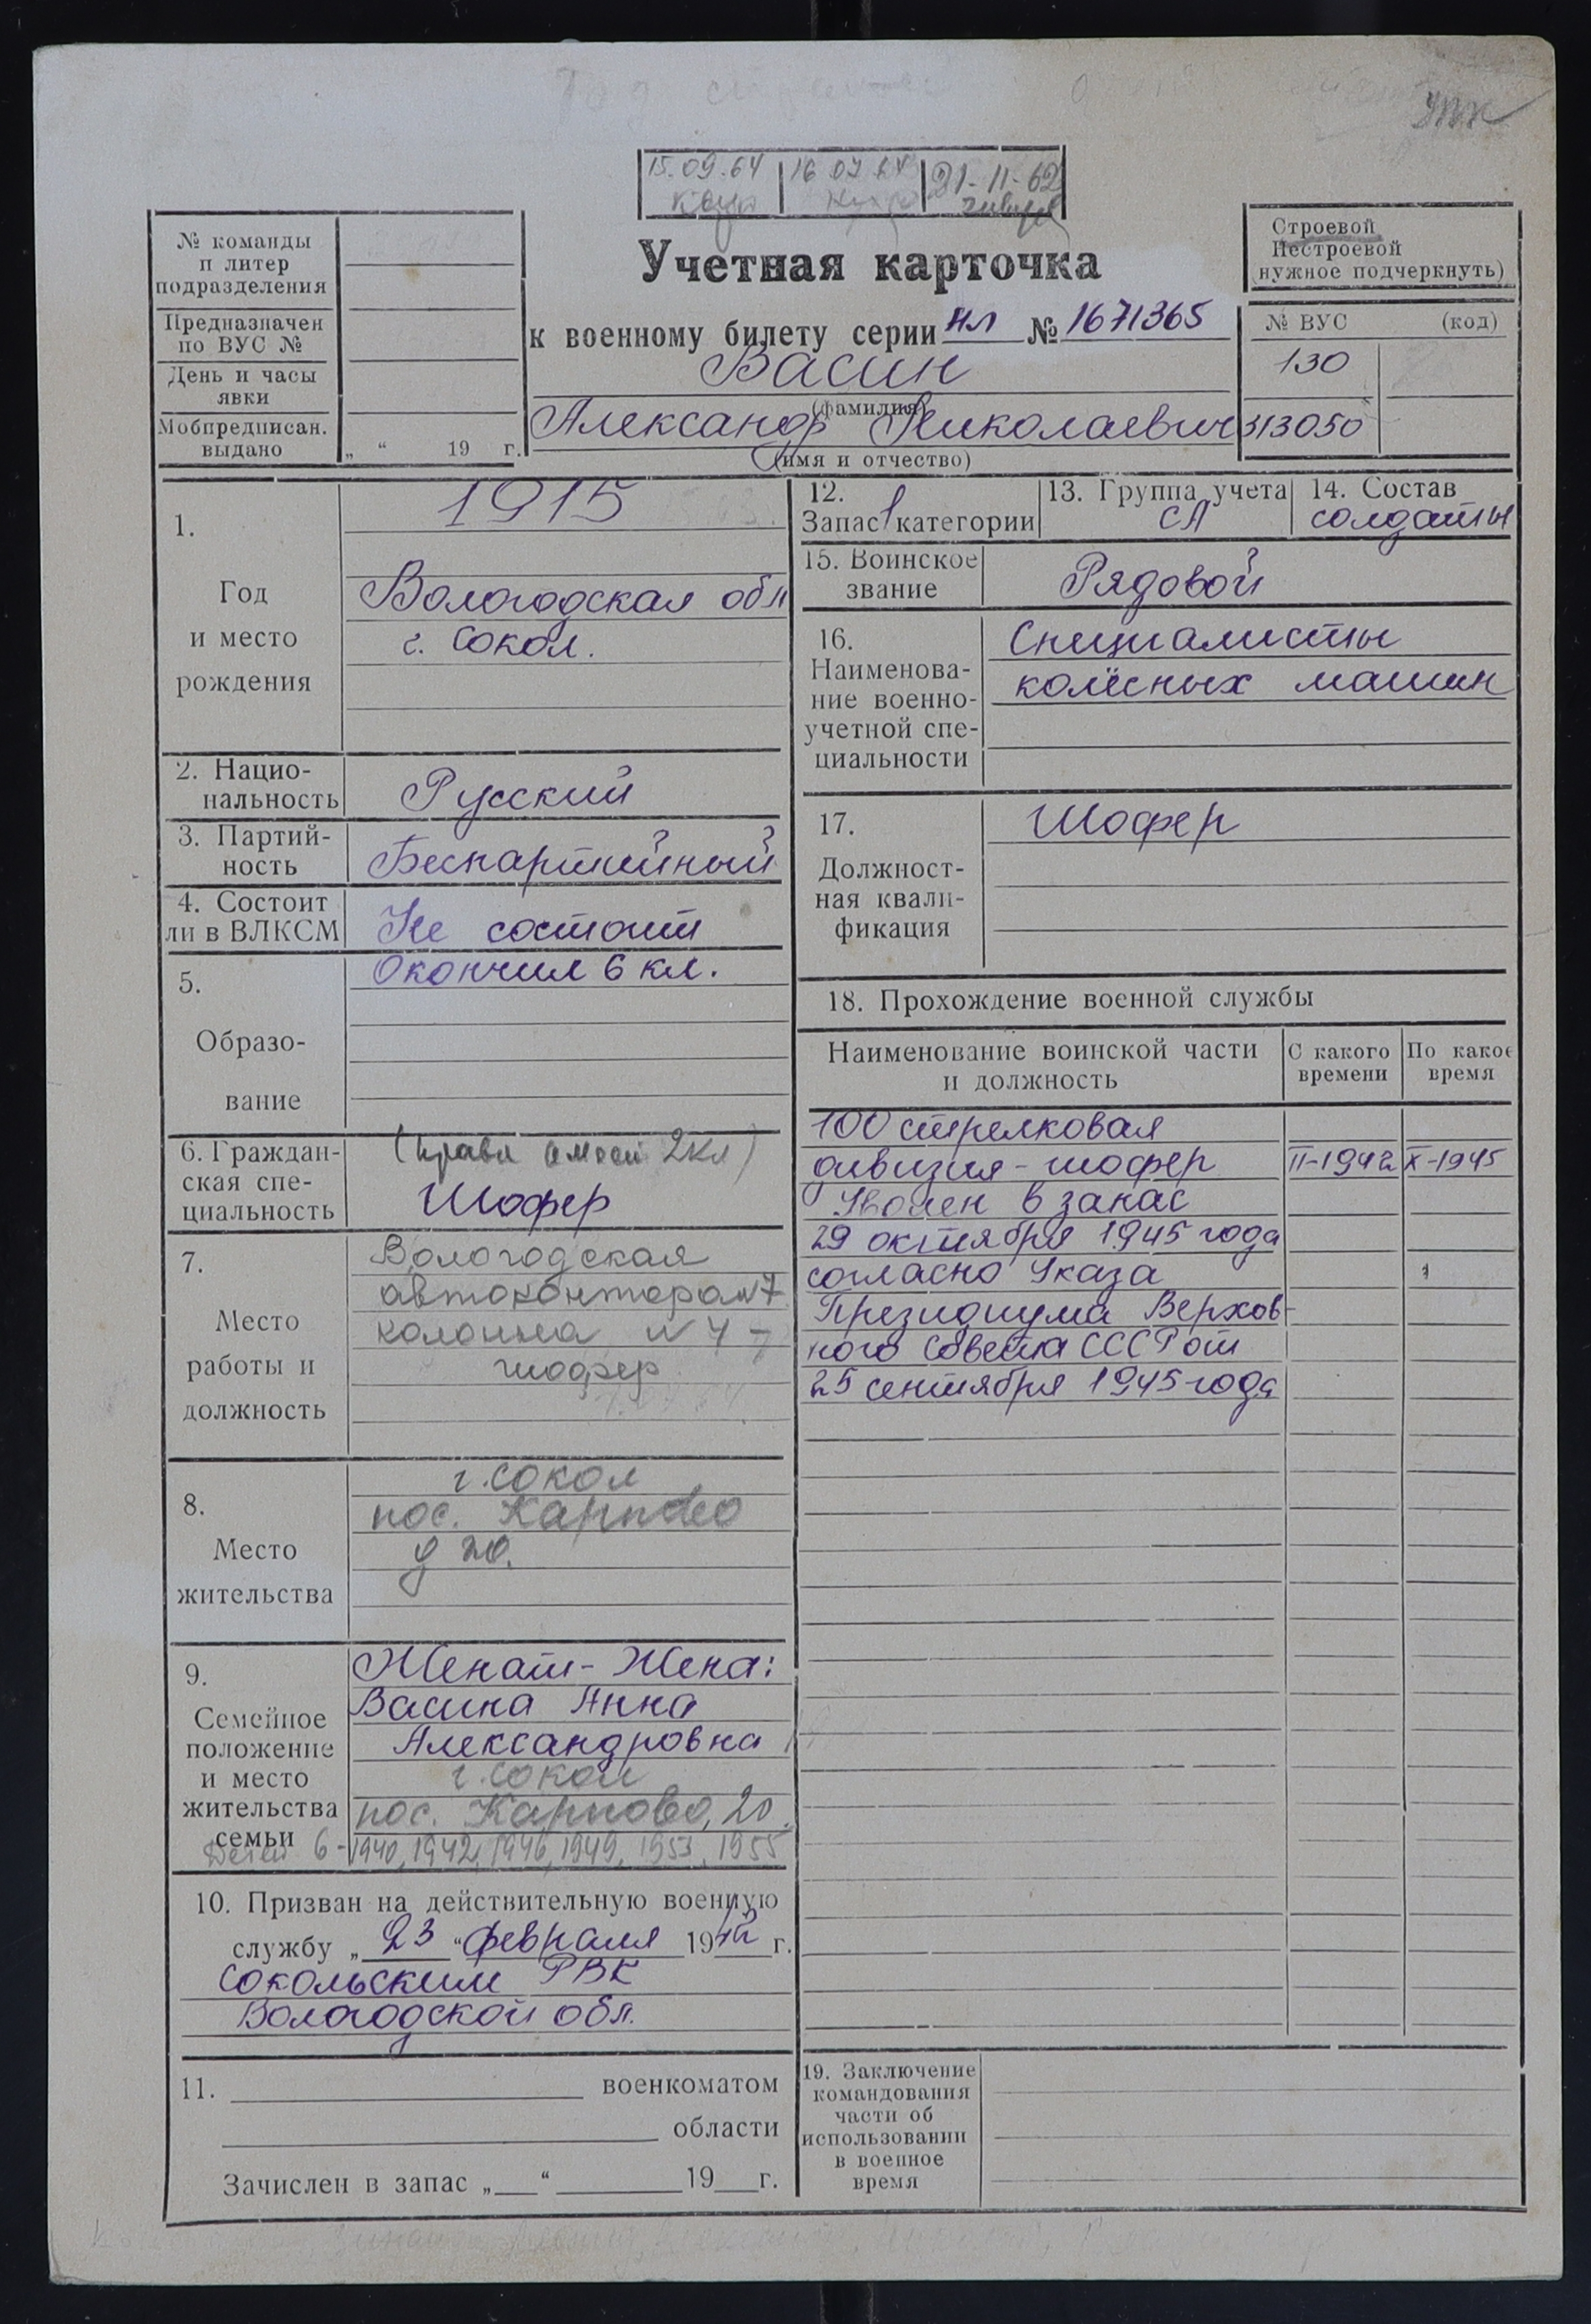 УПК
15.09.64
16 07 64
21-11-62
Учетная карточка
к военному билету серии НЛ № 1671365
Васин
(фамилия)
Александр Николаевич
(имя и отчество)
№ команды
п литер
подразделения
Предназначен
по ВУС №
День и часы
явки
Мобпредписан.
выдано
„ “ 19 г.
Строевой
Нестроевой
(нужное подчеркнуть)
№ ВУС (код)
130
313050
1.
Год
и место
рождения
1915
Вологодская обл
г. Сокол.
2. Нацио-
нальность
Русский
3. Партий-
ность
Беспартийный
4. Состоит
ли в ВЛКСМ
Не состоит
5.
Образо-
вание
Окончил 6 кл.
6. Граждан-
ская спе-
циальность
(права 2кл)
Шофер
7.
Место
работы и
должность
Вологодская
автоконтора №7
колонна №4 -
шофер
8.
Место
жительства
г. Сокол
пос. Карпово
д 20.
9.
Семейное
положение
и место
жительства
семьи
Женат - Жена:
Васина Анна
Александровна
г. Сокол
пос. Карпово, 20.
Детей 6 - 1940, 1942, 1946, 1949, 1953, 1955
10. Призван на действительную военную
службу „ 23 “ февраля 1942 г.
Сокольским РВК
Вологодской обл.
11. военкоматом
области
Зачислен в запас „ “ 19 г.
12.
Запас 1 категории
13. Группа учета
СА
14. Состав
солдаты
15. Воинское
звание
Рядовой
16.
Наименова-
ние военно-
учетной спе-
циальности
Специалисты
колёсных машин
17.
Должност-
ная квали-
фикация
Шофер
18. Прохождение военной службы
Наименование воинской части
и должность
С какого
времени
По какое
время
100 стрелковая
дивизия - шофер II-1942 X-1945
Уволен в запас
29 октября 1945 года
согласно Указа
Президиума Верхов-
ного Совета СССР от
25 сентября 1945 года
19. Заключение
командования
части об
использовании
в военное
время